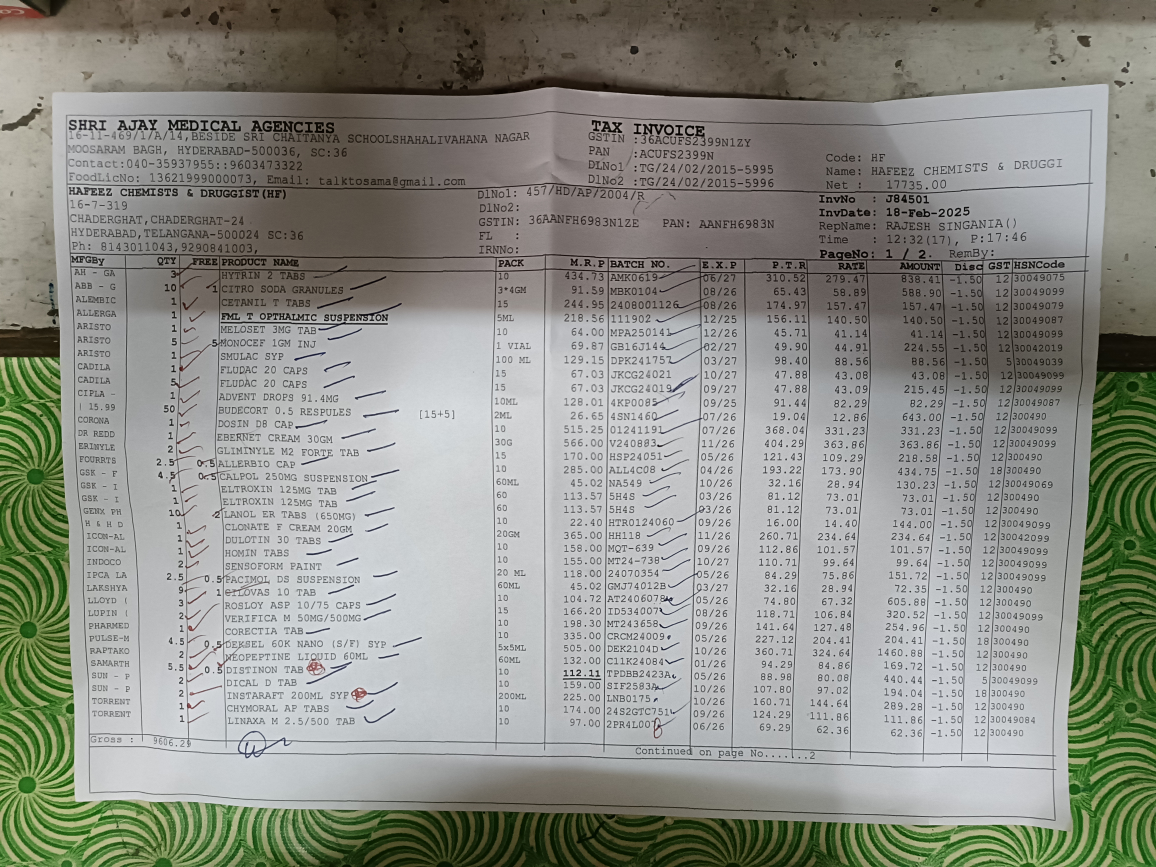 SHRI AJAY MEDICAL AGENCIES
16-11-469/1/A/14,BESIDE SRI CHAITANYA SCHOOLSHAHALIVAHANA NAGAR
MOOSARAM BAGH, HYDERABAD-500036, SC:36
Contact:040-35937955::9603473322
FoodLicNo: 13621999000073, Email: talktosama@gmail.com
TAX INVOICE
GSTIN :36ACUFS2399N1ZY
PAN :ACUFS2399N
DLNo1 :TG/24/02/2015-5995
DLNo2 :TG/24/02/2015-5996
Code: HF
Name: HAFEEZ CHEMISTS & DRUGGI
Net : 17735.00
HAFEEZ CHEMISTS & DRUGGIST(HF)
16-7-319
CHADERGHAT,CHADERGHAT-24
HYDERABAD,TELANGANA-500024 SC:36
Ph: 8143011043,9290841003,
DlNo1: 457/HD/AP/2004/R
DlNo2:
GSTIN: 36AANFH6983N1ZE PAN: AANFH6983N
FL :
IRNNo:
InvNo : J84501
InvDate: 18-Feb-2025
RepName: RAJESH SINGANIA()
Time : 12:32(17), P:17:46
PageNo: 1 / 2. RemBy:
MFGBy QTY FREE PRODUCT NAME PACK M.R.P BATCH NO. E.X.P P.T.R RATE AMOUNT Disc GST HSNCode
AH - GA 3 HYTRIN 2 TABS 10 434.73 AMK0619 06/27 310.52 279.47 838.41 -1.50 12 30049075
ABB - G 10 1 CITRO SODA GRANULES 3*4GM 91.59 MBK0104 08/26 65.43 58.89 588.90 -1.50 12 30049099
ALEMBIC 1 CETANIL T TABS 15 244.95 2408001126 08/26 174.97 157.47 157.47 -1.50 12 30049079
ALLERGA 1 FML T OPTHALMIC SUSPENSION 5ML 218.56 111902 12/25 156.11 140.50 140.50 -1.50 12 30049087
ARISTO 1 MELOSET 3MG TAB 10 64.00 MPA250141 12/26 45.71 41.14 41.14 -1.50 12 30049099
ARISTO 5 5 MONOCEF 1GM INJ 1 VIAL 69.87 GB16J144 02/27 49.90 44.91 224.55 -1.50 12 30042019
ARISTO 1 SMULAC SYP 100 ML 129.15 DPK241757 03/27 98.40 88.56 88.56 -1.50 5 30049039
CADILA 1 FLUDAC 20 CAPS 15 67.03 JKCG24021 10/27 47.88 43.08 43.08 -1.50 12 30049099
CADILA 5 FLUDAC 20 CAPS 15 67.03 JKCG24019 09/27 47.88 43.09 215.45 -1.50 12 30049099
CIPLA - 1 ADVENT DROPS 91.4MG 10ML 128.01 4KP0085 09/25 91.44 82.29 82.29 -1.50 12 30049087
| 15.99 50 BUDECORT 0.5 RESPULES [15+5] 2ML 26.65 4SN1460 07/26 19.04 12.86 643.00 -1.50 12 300490
CORONA 1 DOSIN D8 CAP 10 515.25 01241191 07/26 368.04 331.23 331.23 -1.50 12 30049099
DR REDD 1 EBERNET CREAM 30GM 30G 566.00 V240883 11/26 404.29 363.86 363.86 -1.50 12 30049099
ERINYLE 2 GLIMINYLE M2 FORTE TAB 10 170.00 HSP24051 05/26 121.43 109.29 218.58 -1.50 12 30049099
FOURRTS 2.5 0.5 ALLERBIO CAP 10 285.00 ALL4C08 04/26 193.22 173.90 434.75 -1.50 18 300490
GSK - F 4.5 0.5 CALPOL 250MG SUSPENSION 60ML 45.02 NA549 10/26 32.16 28.94 130.23 -1.50 12 30049069
GSK - I 1 ELTROXIN 125MG TAB 60 113.57 5H4S 03/26 81.12 73.01 73.01 -1.50 12 300490
GSK - I 1 ELTROXIN 125MG TAB 60 113.57 5H4S 03/26 81.12 73.01 73.01 -1.50 12 300490
GENX PH 10 2 LANOL ER TABS (650MG) 10 22.40 HTR0124060 09/26 16.00 14.40 144.00 -1.50 12 30049099
H & H D 1 CLONATE F CREAM 20GM 20GM 365.00 HH118 11/26 260.71 234.64 234.64 -1.50 12 30042099
ICON-AL 1 DULOTIN 30 TABS 10 158.00 MQT-639 09/26 112.86 101.57 101.57 -1.50 12 30049099
ICON-AL 1 HOMIN TABS 10 155.00 MT24-738 10/27 110.71 99.64 99.64 -1.50 12 30049099
INDOCO 2 SENSOFORM PAINT 20 ML 118.00 24070354 05/26 84.29 75.86 151.72 -1.50 12 30049099
IPCA LA 2.5 0.5 PACIMOL DS SUSPENSION 60ML 45.02 GMJ74012B 03/27 32.16 28.94 72.35 -1.50 12 300490
LAKSHYA 9 1 CILOVAS 10 TAB 10 104.72 AT2406078 05/26 74.80 67.32 605.88 -1.50 12 30049099
LLOYD ( 3 ROSLOY ASP 10/75 CAPS 15 166.20 ID534007 08/26 118.71 106.84 320.52 -1.50 12 30049099
LUPIN ( 2 VERIFICA M 50MG/500MG 10 198.30 MT243658 09/26 141.64 127.48 254.96 -1.50 12 300490
PHARMED 1 CORECTIA TAB 10 335.00 CRCM24009 05/26 227.12 204.41 204.41 -1.50 18 300490
PULSE-M 4.5 0.5 DEKSEL 60K NANO (S/F) SYP 5x5ML 505.00 DEK2104D 10/26 360.71 324.64 1460.88 -1.50 12 300490
RAPTAKO 2 NEOPEPTINE LIQUID 60ML 60ML 132.00 C11K24084 01/26 94.29 84.86 169.72 -1.50 12 300490
SAMARTH 5.5 0.5 DISTINON TAB 10 112.11 TPDBB2423A 05/26 88.98 80.08 440.44 -1.50 5 30049099
SUN - P 2 DICAL D TAB 10 159.00 SIF2583A 10/26 107.80 97.02 194.04 -1.50 18 300490
SUN - P 2 INSTARAFT 200ML SYP 200ML 225.00 LNB0175 10/26 160.71 144.64 289.28 -1.50 12 300490
TORRENT 1 CHYMORAL AP TABS 10 174.00 24S2GTC751 09/26 124.29 111.86 111.86 -1.50 12 30049084
TORRENT 1 LINAXA M 2.5/500 TAB 10 97.00 2PR4L007 06/26 69.29 62.36 62.36 -1.50 12 300490
Gross : 9606.29
Continued on page No......2